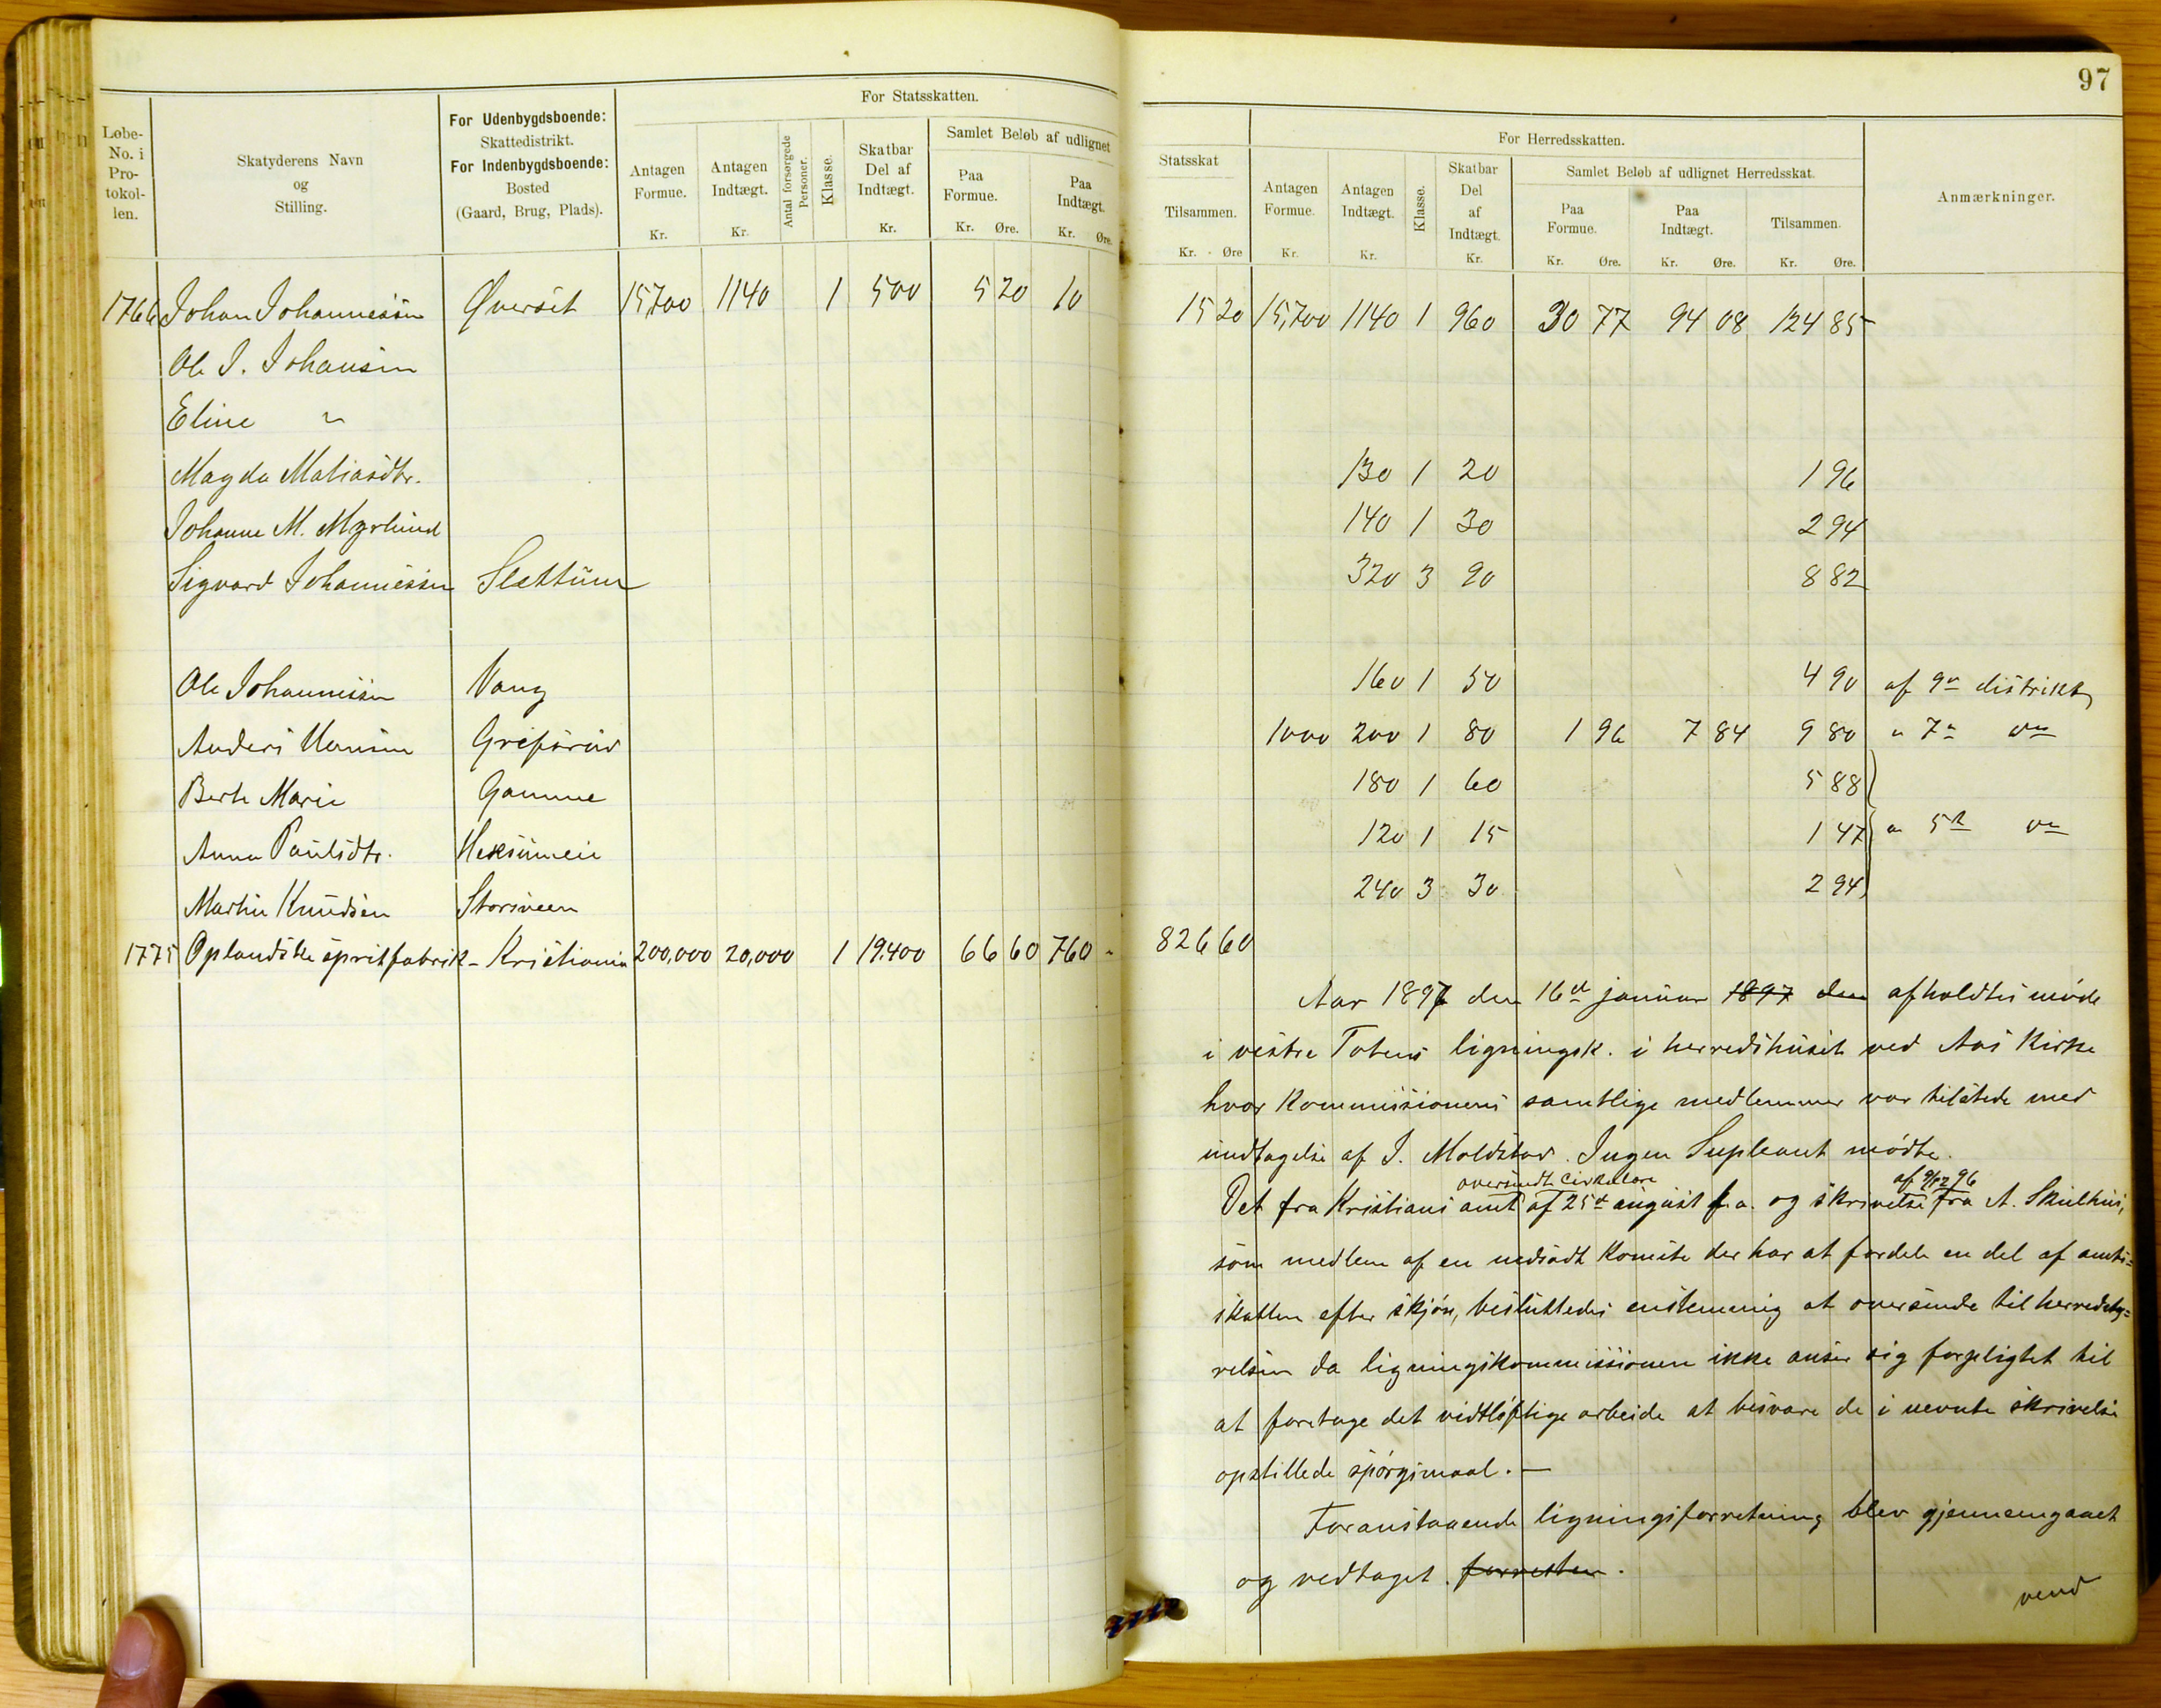 97
For Statsskatten.
Løbe-No. i Pro-tokol-len.
Skatyderens Navn og Stilling.
For Udenbygdsboende: Skattedistrikt. For Indenbygdsboende: Bosted (Gaard, Brug, Plads).
Antagen Formue. Kr.
Antagen Indtægt. Kr.
Antal forsørgede Personer.
Klasse.
Skatbar Del af Indtægt. Kr.
Samlet Beløb af udlignet
Paa Formue. Kr. Øre.
Paa Indtægt. Kr. Øre.
Statsskat
Tilsammen. Kr. Øre
For Herredsskatten.
Antagen Formue. Kr.
Antagen Indtægt. Kr.
Klasse.
Skatbar Del af Indtægt. Kr.
Samlet Beløb af udlignet Herredsskat.
Paa Formue. Kr. Øre.
Paa Indtægt. Kr. Øre.
Tilsammen. Kr. Øre.
Anmærkninger.
1766 Johan Johannessen Øverset 15,700 1140 1 500 5 20 10 15 20 15,700 1140 1 960 30 77 94 08 124 85
Ole J. Johansen
Eline "
Magda Matiasdtr. 130 1 20 1 96
Johanne M. Myrlund 140 1 30 2 94
Sigvard Johannessen Slettum 320 3 90 8 82
Ole Johannessen Vang 160 1 50 4 90 af 9de distrikt
Anders Hansen Grefsrud 1000 200 1 80 1 96 7 84 9 80 " 7de do
Berte Marie Gamme 180 1 60 5 88
Anna Paulsdtr. Heksumeie 120 1 15 1 47 " 5te do
Martin Knudsen Storsveen 240 3 30 2 94
1775 Oplandske spritfabrik - Kristiania 200,000 20,000 1 19.400 66 60 760 - 826 60
Aar 1897 den 16de januar 1897 den afholdtes møde
i vestre Totens ligningsk. i herredshuset ved Aas Kirke
hvor Kommissionens samtlige medlemmer var tilstede med
undtagelse af J. Moldstad. Ingen Supleant mødte.
oversendt cirkulære af 9/12 96
Det fra Kristians amt af 25de august f.a. og skrivelse fra A. Skulhus,
som medlem af en nedsadt Komite der har at fordele en del af amts=
skatten efter skjøn, besluttedes enstemmig at oversende til herredsty=
relsen da ligningskommissionen ikke anser sig forpligtet til
at foretage det vidtløftige arbeide at besvare de i nevnte skrivelse
opstillede spørgsmaal. —
Foranstaaende ligningsforretning blev gjennemgaaet
og vedtaget. forretten.
vend